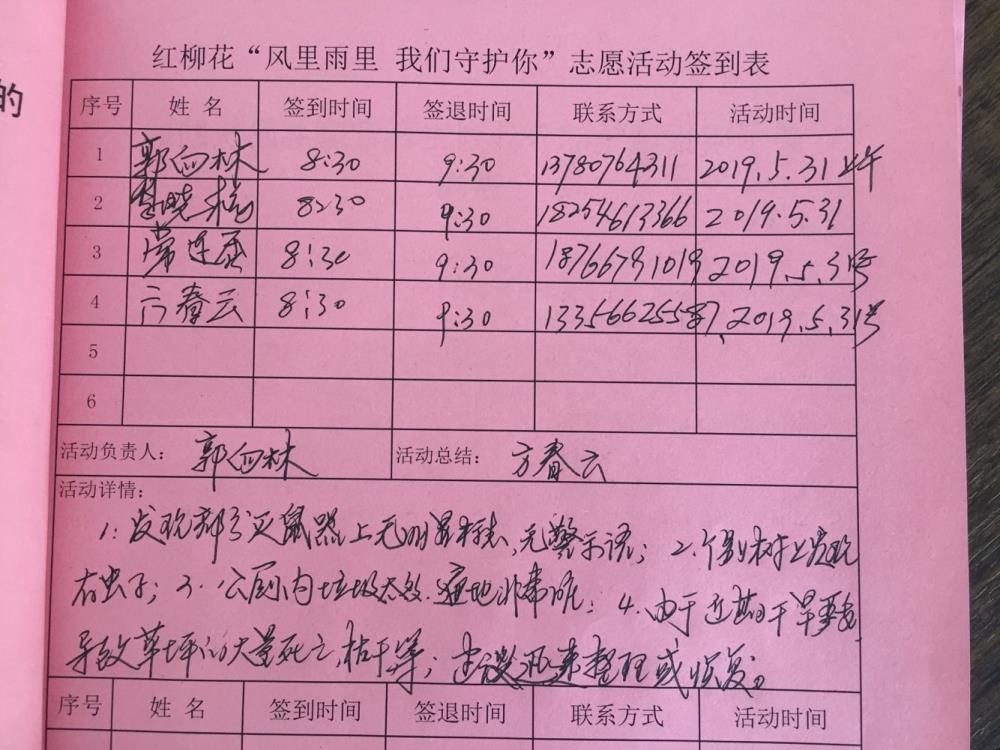 的
红柳花“风里雨里 我们守护你”志愿活动签到表
序号 姓 名 签到时间 签退时间 联系方式 活动时间
1 郭向林 8:30 9:30 13780764311 2019.5.31上午
2 8:30 9:30 18254613366 2019.5.31
3 8:30 9:30 18766791019 2019.5.31号
4 方春云 8:30 9:30 2019.5.31号
5
6
活动负责人： 郭向林 活动总结： 方春云
活动详情：
1. 发现部分灭鼠器上无明显标志，无警示语； 2. 个别树上发现
有虫子； 3. 公厕内垃圾太多.遍地非常脏； 4. 由于近期干旱严重
导致草坪的大量死亡，枯干等； 建议迅速整理或恢复。
序号 姓 名 签到时间 签退时间 联系方式 活动时间